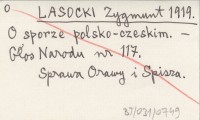 o LASOCKI Zygmunt 1919.
O sporze polsko-czeskim. -
Głos Narodu nr 117.
Sprawa Orawy i Spisza.
37/031/0749